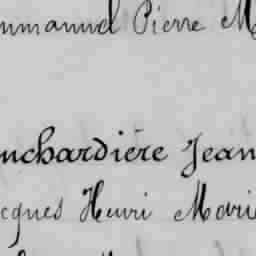 mmanuel Pierre M
nchardière Jean
cques Henri Mari